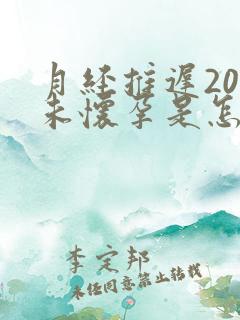 月经推迟20
未懷孕是怎
李定邦
未经同意禁止转载